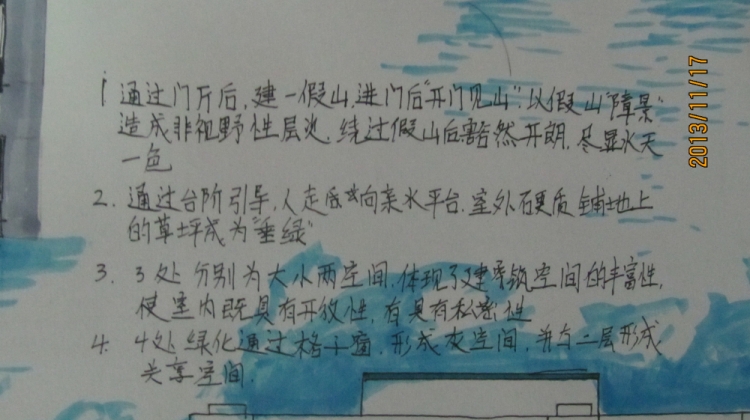 1 通过门厅后,建一假山,进门后"开门见山".以假山"障景"
造成非视野性层次,绕过假山后豁然开朗,尽显水天
一色
2. 通过台阶引导,人走向亲水平台.室外硬质铺地上
的草坪成为"垂绿"
3. 3处分别为大小两空间,体现了建筑空间的丰富性,
使室内既具有开放性,有具有私密性
4. 4处绿化通过格子窗,形成灰空间,并与二层形成
共享空间.
2013/11/17